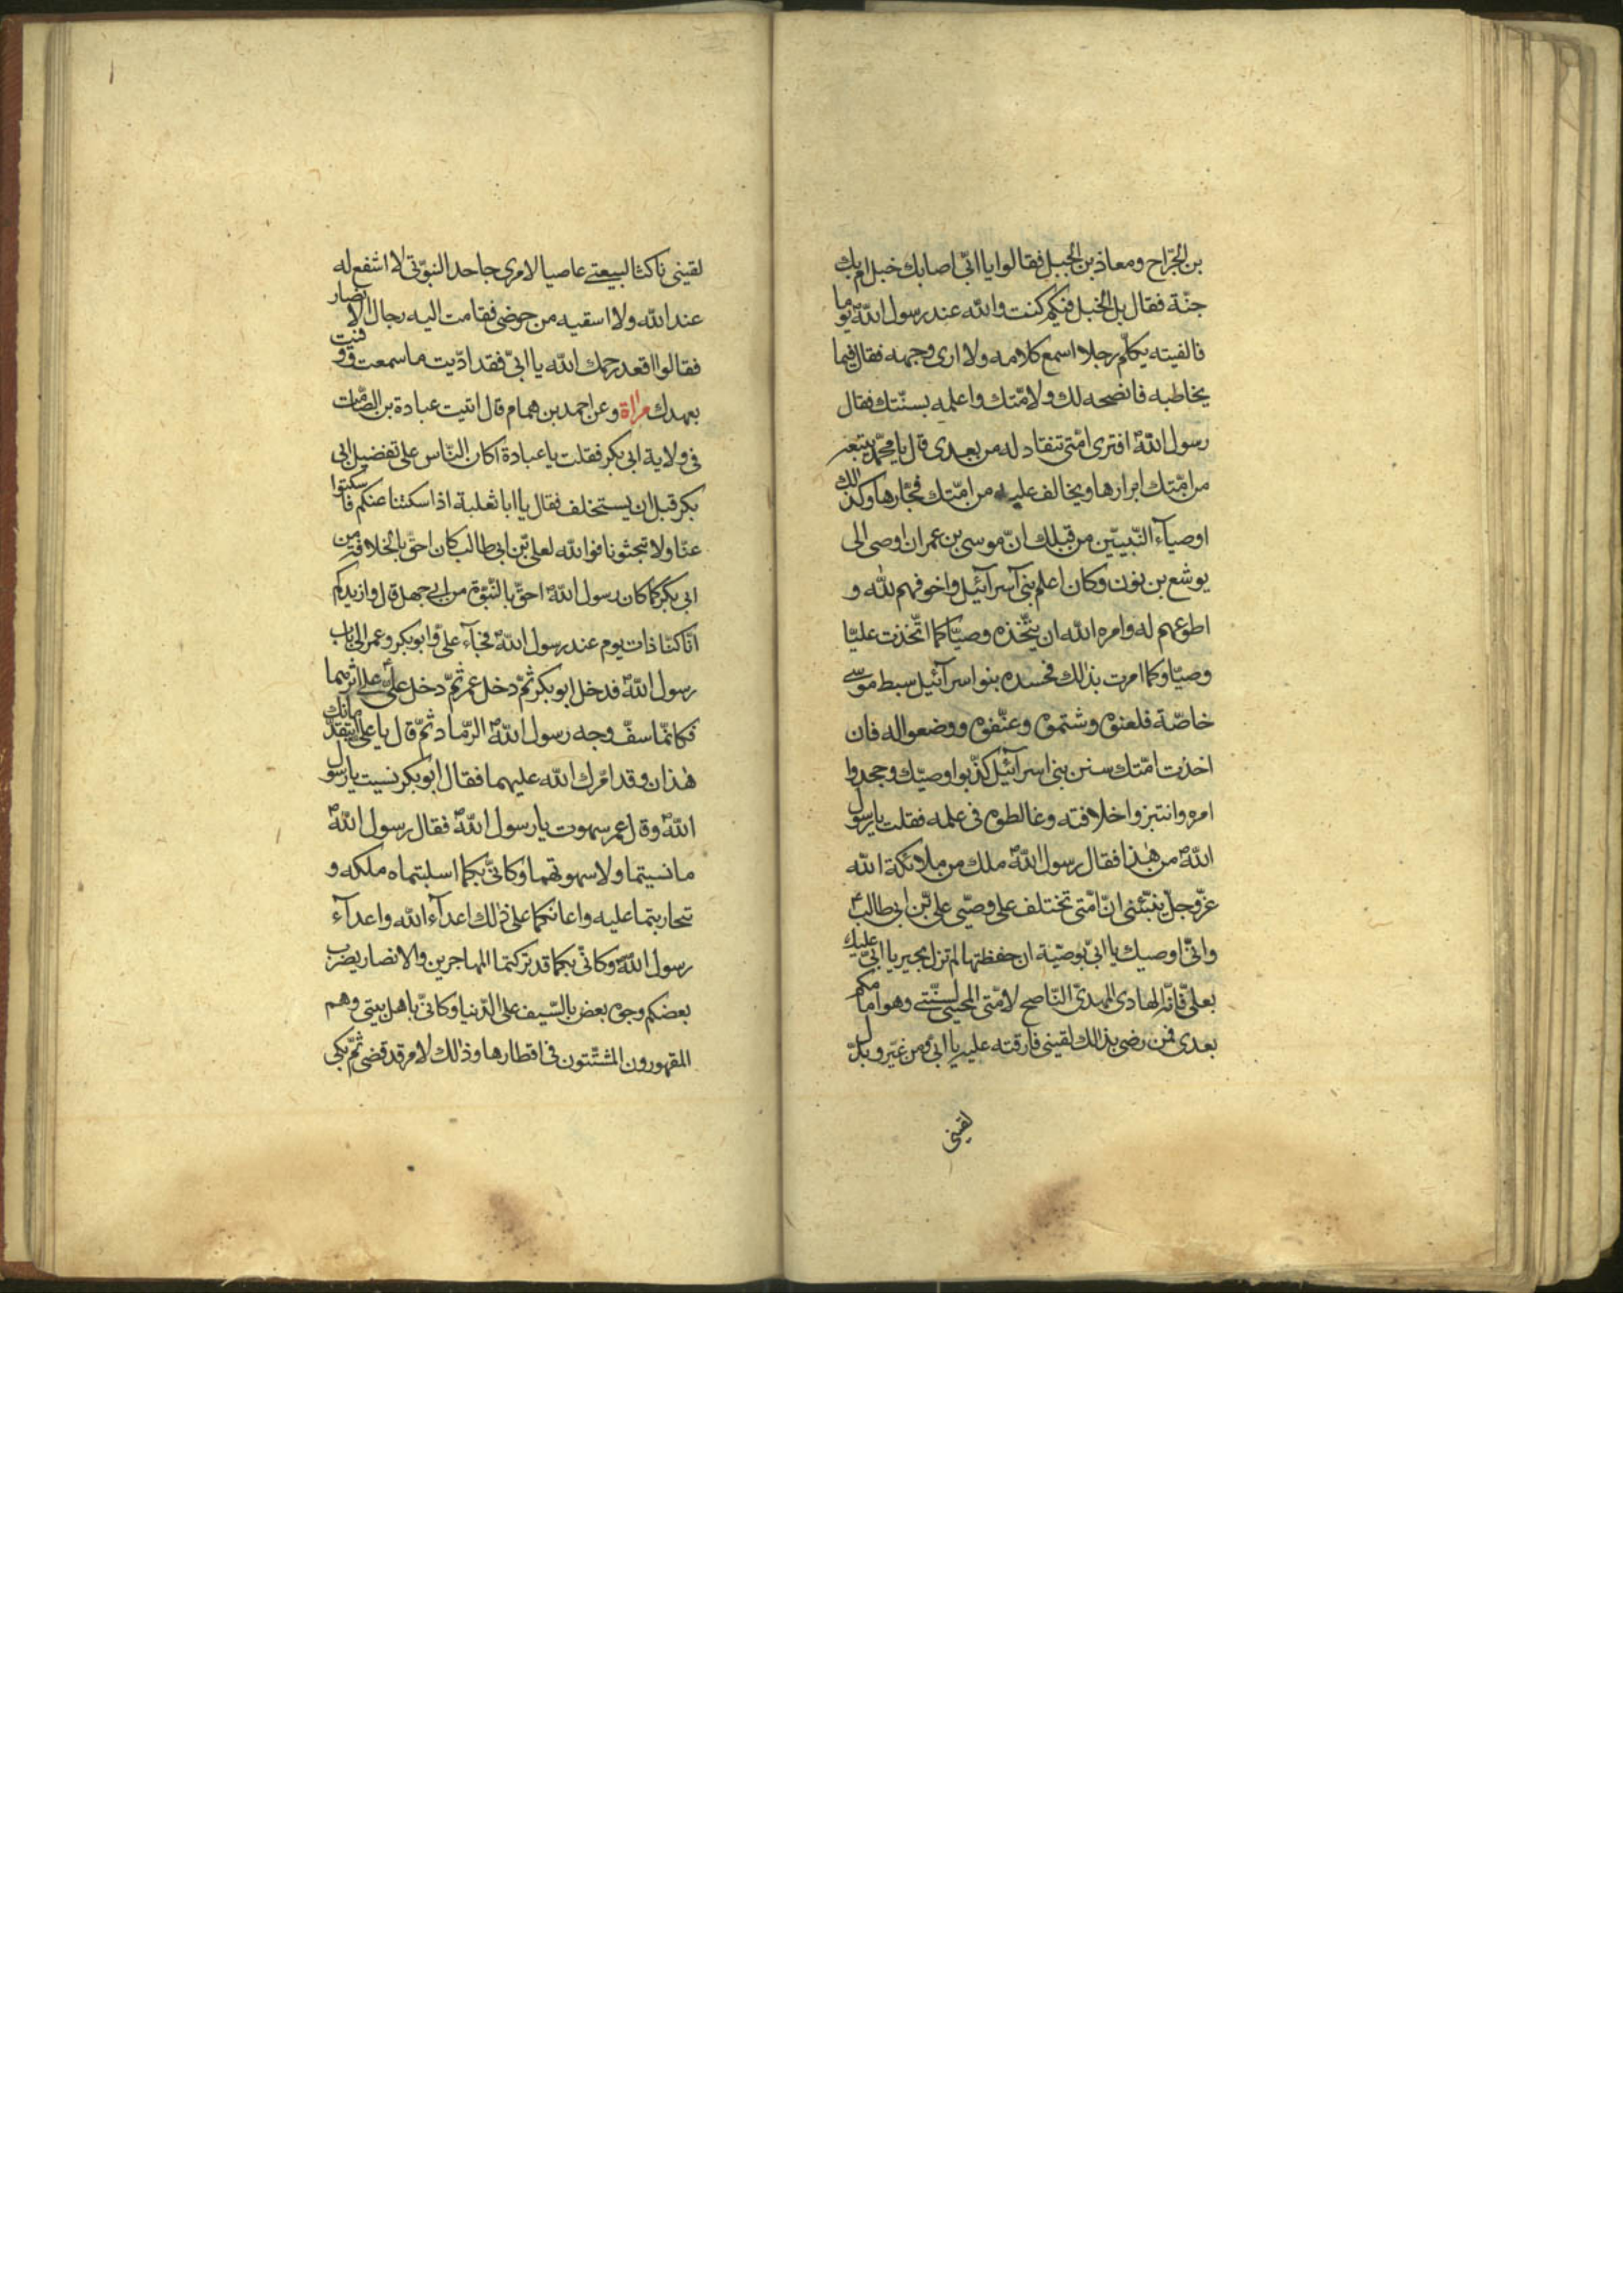 بن الجرّاح ومعاذ بن الجبل فقالوا يا ابيّ اصابك خبل ام بك
جنّة فقال بل الخبل فيكم كنت والله عند رسول الله يوما
فالفيته يكلّم رجلا اسمع كلامه ولا ارى وجهه فقال فيما
يخاطبه فانصحه لك ولامّتك واعلمه بسنّتك فقال
رسول الله افترى امّتى تنقاد له من بعدى قال يا محمّد يتبعه
من امّتك ابرارها ويخالف عليه من امّتك فجّارها وكذلك
اوصيآء النّبييّن من قبلك انّ موسى بن عمران اوصى الى
يوشع بن نون وكان اعلم بنى اسرآئيل واخوفهم لله و
اطوعهم له وامره الله ان يتّخذه وصيّا كما اتّخذت عليّا
وصيّا وكما امرت بذلك فحسده بنوا اسرآئيل سبط موسى
خاصّة فلعنوه وشتموه وعنّفوه ووضعوا له فان
اخذت امّتك سنن بنى اسرآئيل كذّبوا وصيّك وجحدوا
امره وانتبزوا خلافته وغالطوه فى علمه فقلت يا رسول
الله من هذا فقال رسول الله ملك من ملائكة الله
عزّ وجلّ ينبّئنى انّ امّتى تختلف على وصّيى علىّ بن ابى طالب
وانّى اوصيك يا ابيّ بوصيّة ان حفظتها لم تزل بخير يا ابيّ عليك
بعلىّ فانّه الهادى المهدىّ النّاصح لامّتى المحيى لسنّتى وهو امامكم
بعدى فمن رضى بذلك لقينى فارقته عليه يا ابيّ ومن غيّر وبدّل
لقينى
لقينى ناكثا لبيعتى عاصيا لامرى جاحدا لنبوّتى لا اشفع له
عند الله ولا اسقيه من حوضى فقامت اليه رجال الانصار
فقالوا اقعد رحمك الله يا ابىّ فقد ادّيت ما سمعت ووفيت
بعهدك مراة وعن احمد بن همام قال اتيت عبادة بن الصّامت
فى ولاية ابى بكر فقلت يا عبادة اكان النّاس على تفضيل ابى
بكر قبل ان يستخلف فقال يا ابا ثعلبة اذا سكتنا عنكم فاسكتوا
عنّا ولا تبحثونا فوالله لعلىّ بن ابى طالب كان احقّ بالخلافة من
ابى بكر كما كان رسول الله احقّ بالنّبوّة من ابى جهل قال وازيدكم
انّا كنّا ذات يوم عند رسول الله فجآء علىّ وابو بكر وعمر الى باب
رسول الله فدخل ابو بكر ثمّ دخل عمر ثمّ دخل علىّ على اثرهما
فكانّما سفّ وجه رسول الله الرّماد ثمّ قال يا على ايتقدّمانك
هذان وقد امّرك الله عليهما فقال ابو بكر نسيت يا رسول
الله وقال عمر سهوت يا رسول الله فقال رسول الله
ما نسيتما ولا سهوتما وكانّى بكما اسلبتماه ملكه و
تحاربتما عليه واعانكما على ذلك اعدآء الله واعدآء
رسول الله وكانّى بكما قد تركتما المهاجرين والانصار يضرب
بعضكم وجوه بعض بالسّيف على الدّنيا وكانّى باهل بيتى وهم
المقهورون المشتّتون فى اقطارها وذلك لامر قد قضى ثمّ بكى